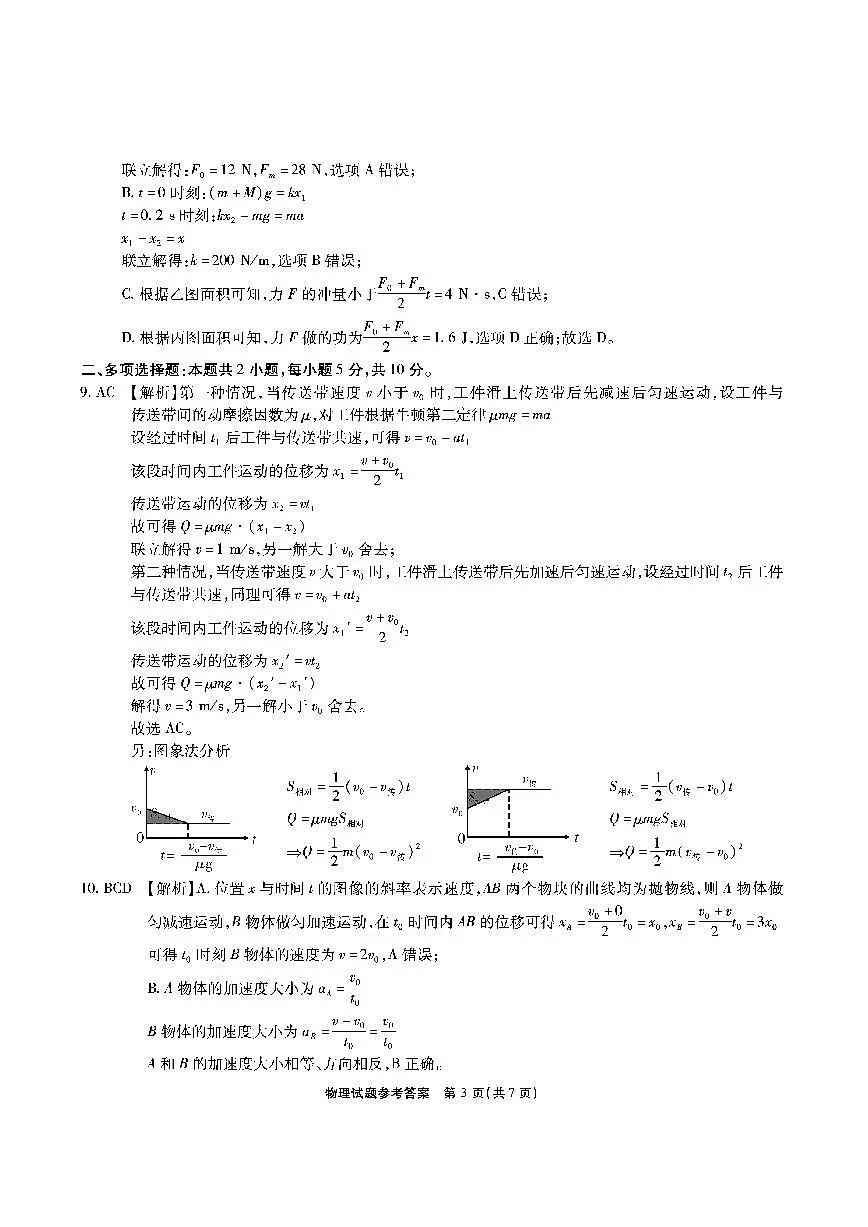 联立解得:F₀=12 N,Fₘ=28 N,选项 A 错误;
B. t=0 时刻:(m+M)g=kx₁
t=0.2 s 时刻:kx₂-mg=ma
x₁-x₂=x
联立解得:k=200 N/m,选项 B 错误;
C. 根据乙图面积可知,力 F 的冲量小于(F₀+Fₘ)/2 t=4 N·s,C 错误;
D. 根据丙图面积可知,力 F 做的功为(F₀+Fₘ)/2 x=1.6 J,选项 D 正确;故选 D。
二、多项选择题:本题共 2 小题,每小题 5 分,共 10 分。
9. AC 【解析】第一种情况,当传送带速度 v 小于 v₀ 时,工件滑上传送带后先减速后匀速运动,设工件与
传送带间的动摩擦因数为 μ,对工件根据牛顿第二定律 μmg=ma
设经过时间 t₁ 后工件与传送带共速,可得 v=v₀-at₁
该段时间内工件运动的位移为 x₁=(v+v₀)/2 t₁
传送带运动的位移为 x₂=vt₁
故可得 Q=μmg·(x₁-x₂)
联立解得 v=1 m/s,另一解大于 v₀ 舍去;
第二种情况,当传送带速度 v 大于 v₀ 时,工件滑上传送带后先加速后匀速运动,设经过时间 t₂ 后工件
与传送带共速,同理可得 v=v₀+at₂
该段时间内工件运动的位移为 x₁′=(v+v₀)/2 t₂
传送带运动的位移为 x₂′=vt₂
故可得 Q=μmg·(x₂′-x₁′)
解得 v=3 m/s,另一解小于 v₀ 舍去。
故选 AC。
另:图象法分析
v
v₀
S
v传
0
t
t=(v₀-v传)/μg
S相对=1/2(v₀-v传)t
Q=μmgS相对
⇒Q=1/2 m(v₀-v传)²
v
v传
S
v₀
0
t
S相对=1/2(v传-v₀)t
Q=μmgS相对
⇒Q=1/2 m(v传-v₀)²
10. BCD 【解析】A. 位置 x 与时间 t 的图像的斜率表示速度,AB 两个物块的曲线均为抛物线,则 A 物体做
匀减速运动,B 物体做匀加速运动,在 t₀ 时间内 AB 的位移可得 x_A=(v₀+0)/2 t₀=x₀,x_B=(v₀+v)/2 t₀=3x₀
可得 t₀ 时刻 B 物体的速度为 v=2v₀,A 错误;
B. A 物体的加速度大小为 a_A=v₀/t₀
B 物体的加速度大小为 a_B=(v-v₀)/t₀=v₀/t₀
A 和 B 的加速度大小相等、方向相反,B 正确。
物理试题参考答案 第 3 页(共 7 页)